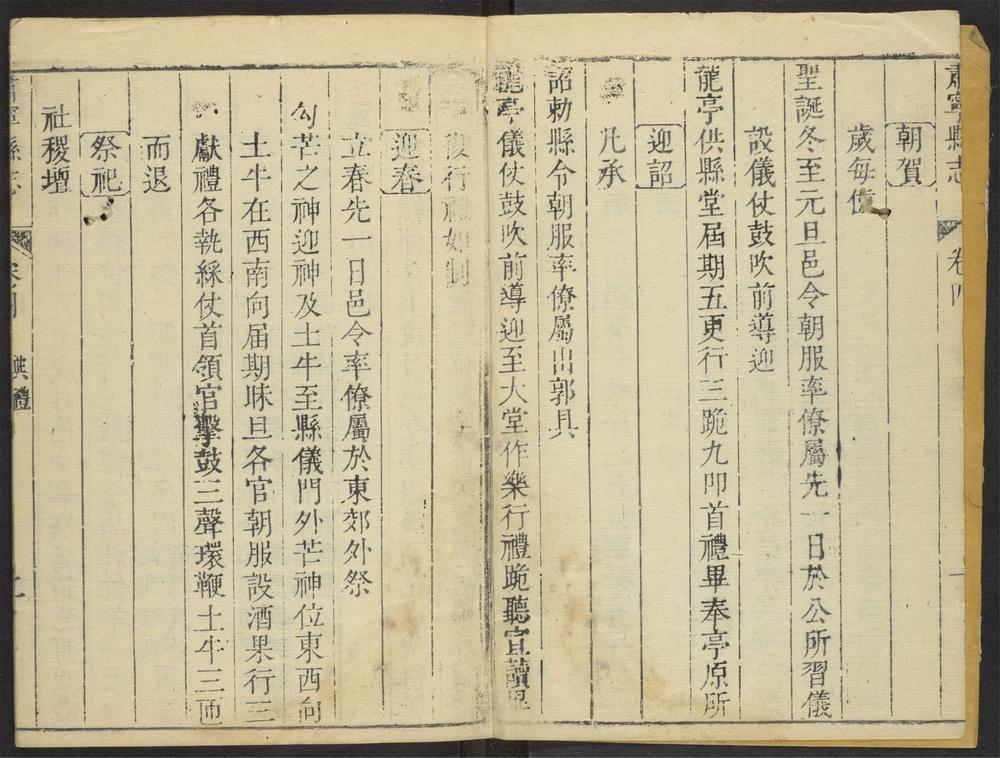 肅寧縣志 卷四 一
朝賀
歲每值
聖誕冬至元旦邑令朝服率僚屬先一日於公所習儀
設儀仗鼓吹前導迎
龍亭供縣堂屆期五更行三跪九叩首禮畢奉亭原所
迎詔
凡承
詔勅縣令朝服率僚屬出郭具
龍亭儀仗鼓吹前導迎至大堂作樂行禮跪聽宣讀畢
復行禮如制
迎春
立春先一日邑令率僚屬於東郊外祭
勾芒之神迎神及土牛至縣儀門外芒神位東西向
土牛在西南向屆期昧旦各官朝服設酒果行三
獻禮各執綵仗首領官擊鼓三聲環鞭土牛三匝
而退
祭祀
社稷壇
肅寧縣志 卷四 典禮